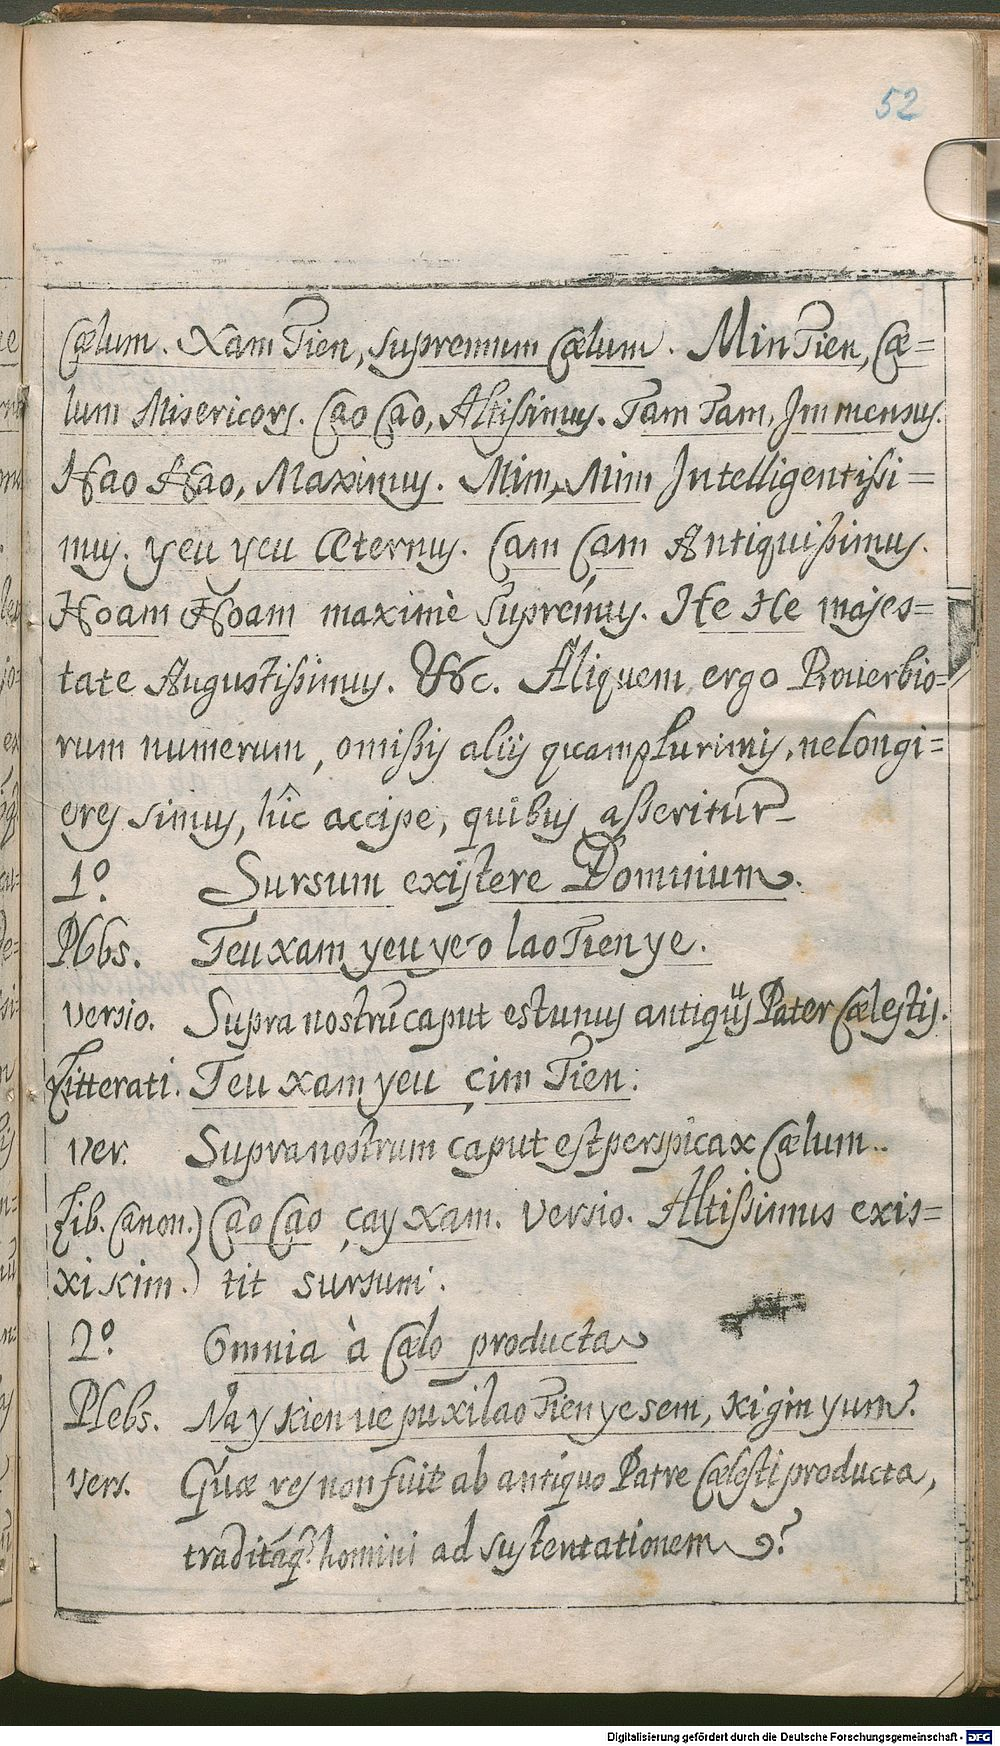 52
Cælum. Xam Tien, supremum Cælum. Min Tien, Cæ=
lum Misericors. Cao Cao, Altissimus. Tam Tam, Immensus.
Hao Hao, Maximus. Mim, Mim Intelligentissi=
mus. yeu yeu Æternus. Cam Cam Antiquissimus.
Hoam Hoam maximè supremus. He He majes=
tate Augustissimus. &c. Aliquem ergo Prouerbio=
rum numerum, omissis aliis quamplurimis, ne longi=
eres simus, hîc accipe, quibus asseritur
1º. Sursum existere Dominium.
Plbs. Teu xam yeu ye-o lao Tien ye.
versio. Supra nostrũ caput est unus antiquus Pater Cælestis.
Litterati. Teu xam yeu çim Tien.
ver. Supra nostrum caput est perspicax Cælum..
Lib. Canon.) Cao Cao çay xam. Versio. Altissimus exis=
xi Kim.) tit sursum.
2º. Omnia à Cælo producta
Plebs. Na y Kien ue pu xi lao Tien ye sem, xi gin yum?
vers. Quæ res non fuit ab antiquo Patre Cælesti producta,
traditáq; homini ad sustentationem?
Digitalisierung gefördert durch die Deutsche Forschungsgemeinschaft - DFG